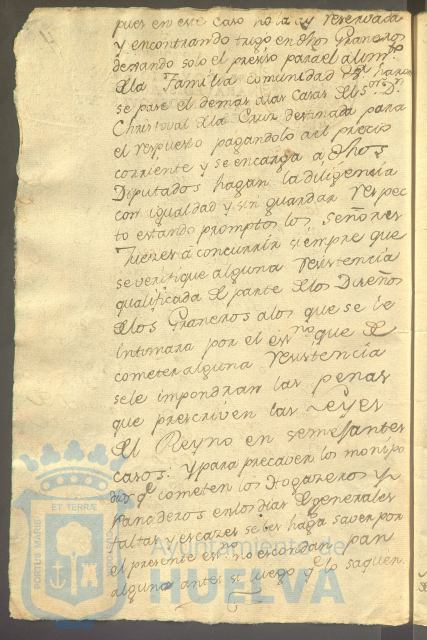 pues en este caso no la ay reservada
y encontrando trigo en dhos Graneros
dexando solo el preciso para el alimto
de la Familia comunidad &a haran
se pase el demas a las casas de el Sor Dn
Christoval de la Cruz destinada para
el respuesto pagandolo a el precio
corriente y se encarga a dhos
Diputados hagan la diligencia
con igualdad y sin guardar respec
to estando promptos los señores
Jueces a concurrir siempre que
se verifique alguna resistencia
qualificada de parte de los Dueños
de los Graneros a los que se le
intimara por el essno que de
cometer alguna resistencia
se le impondran las penas
que prescriven las Leyes
del Reyno en semejantes
casos: y para precaver los monipo
dios qe cometen los Hogazeros y
Panaderos en los dias de generales
faltas y escazes se les haga saver por
el presente essno no escondan pan
alguno antes si luego qe lo saquen
PORTUS MARIS ET TERRÆ CUSTODIA
Ayuntamiento de
HUELVA